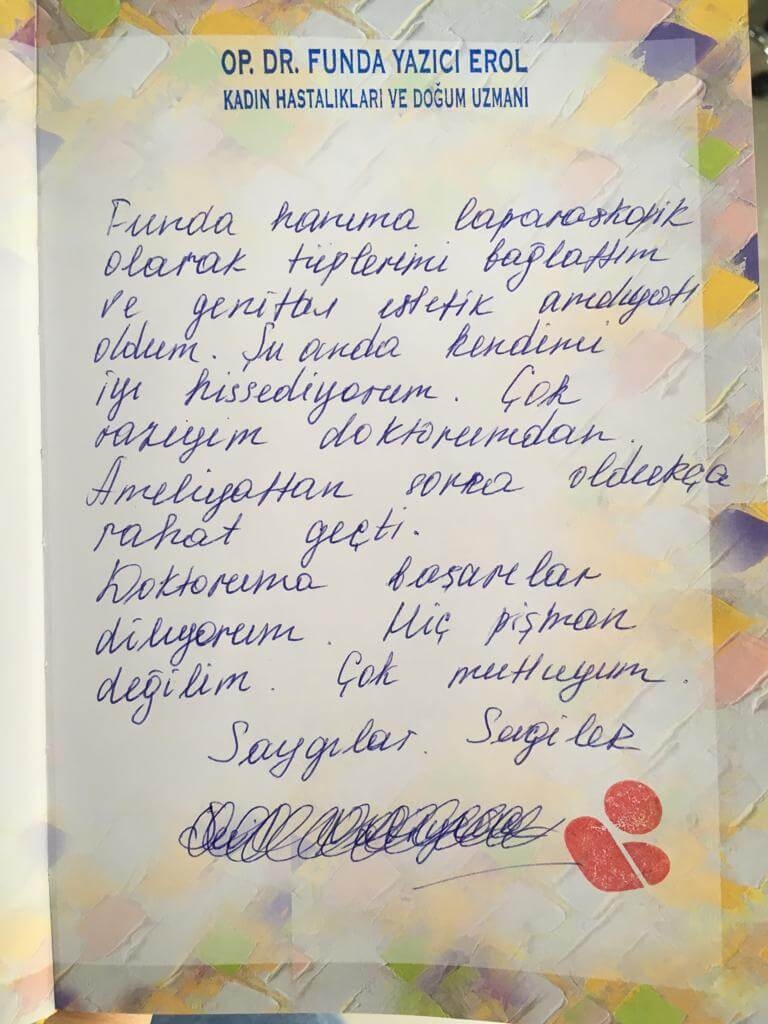 OP. DR. FUNDA YAZICI EROL
KADIN HASTALIKLARI VE DOĞUM UZMANI
Funda hanıma laparaskopik
olarak tüplerimi bağlattım
ve genital estetik ameliyatı
oldum. Şu anda kendimi
iyi hissediyorum. Çok
razıyım doktorumdan.
Ameliyattan sonra oldukça
rahat geçti.
Doktoruma başarılar
diliyorum. Hiç pişman
değilim. Çok mutluyum.
Saygılar. Sevgiler